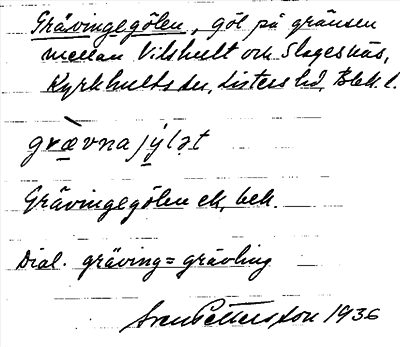 Grävingegölen, göl på gränsen
mellan Vilshult och Slagesnäs,
Kyrkhults sn, Listers hd, Blek. l.
grævnajýlət
Grävingegölen ek, bek.
Dial. gräving = grävling
Sven Pettersson 1936